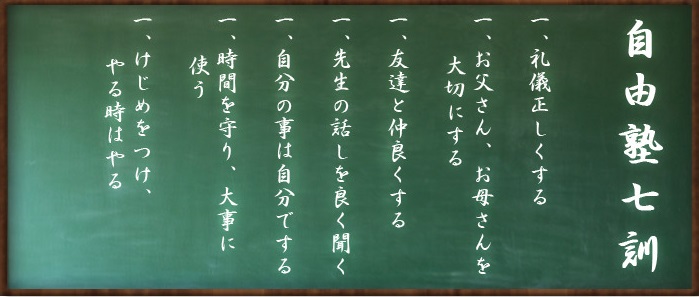 自由塾七訓
一、礼儀正しくする
一、お父さん、お母さんを
大切にする
一、友達と仲良くする
一、先生の話しを良く聞く
一、自分の事は自分でする
一、時間を守り、大事に
使う
一、けじめをつけ、
やる時はやる